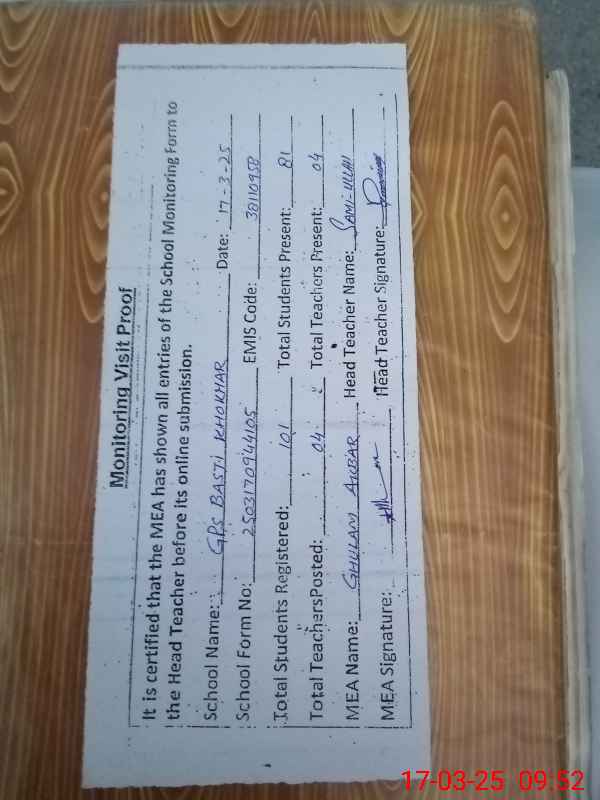 Monitoring Visit Proof
It is certified that the MEA has shown all entries of the School Monitoring Form to
the Head Teacher before its online submission.
School Name: GPS BASTI KHOKHAR Date: 17-3-25
School Form No: 2503170944105 EMIS Code: 38110958
Total Students Registered: 101 Total Students Present: 81
Total TeachersPosted: 04 Total Teachers Present: 04
MEA Name: GHULAM AKBAR Head Teacher Name: SAMI-ULLAH
MEA Signature: Head Teacher Signature:
17-03-25 09:52